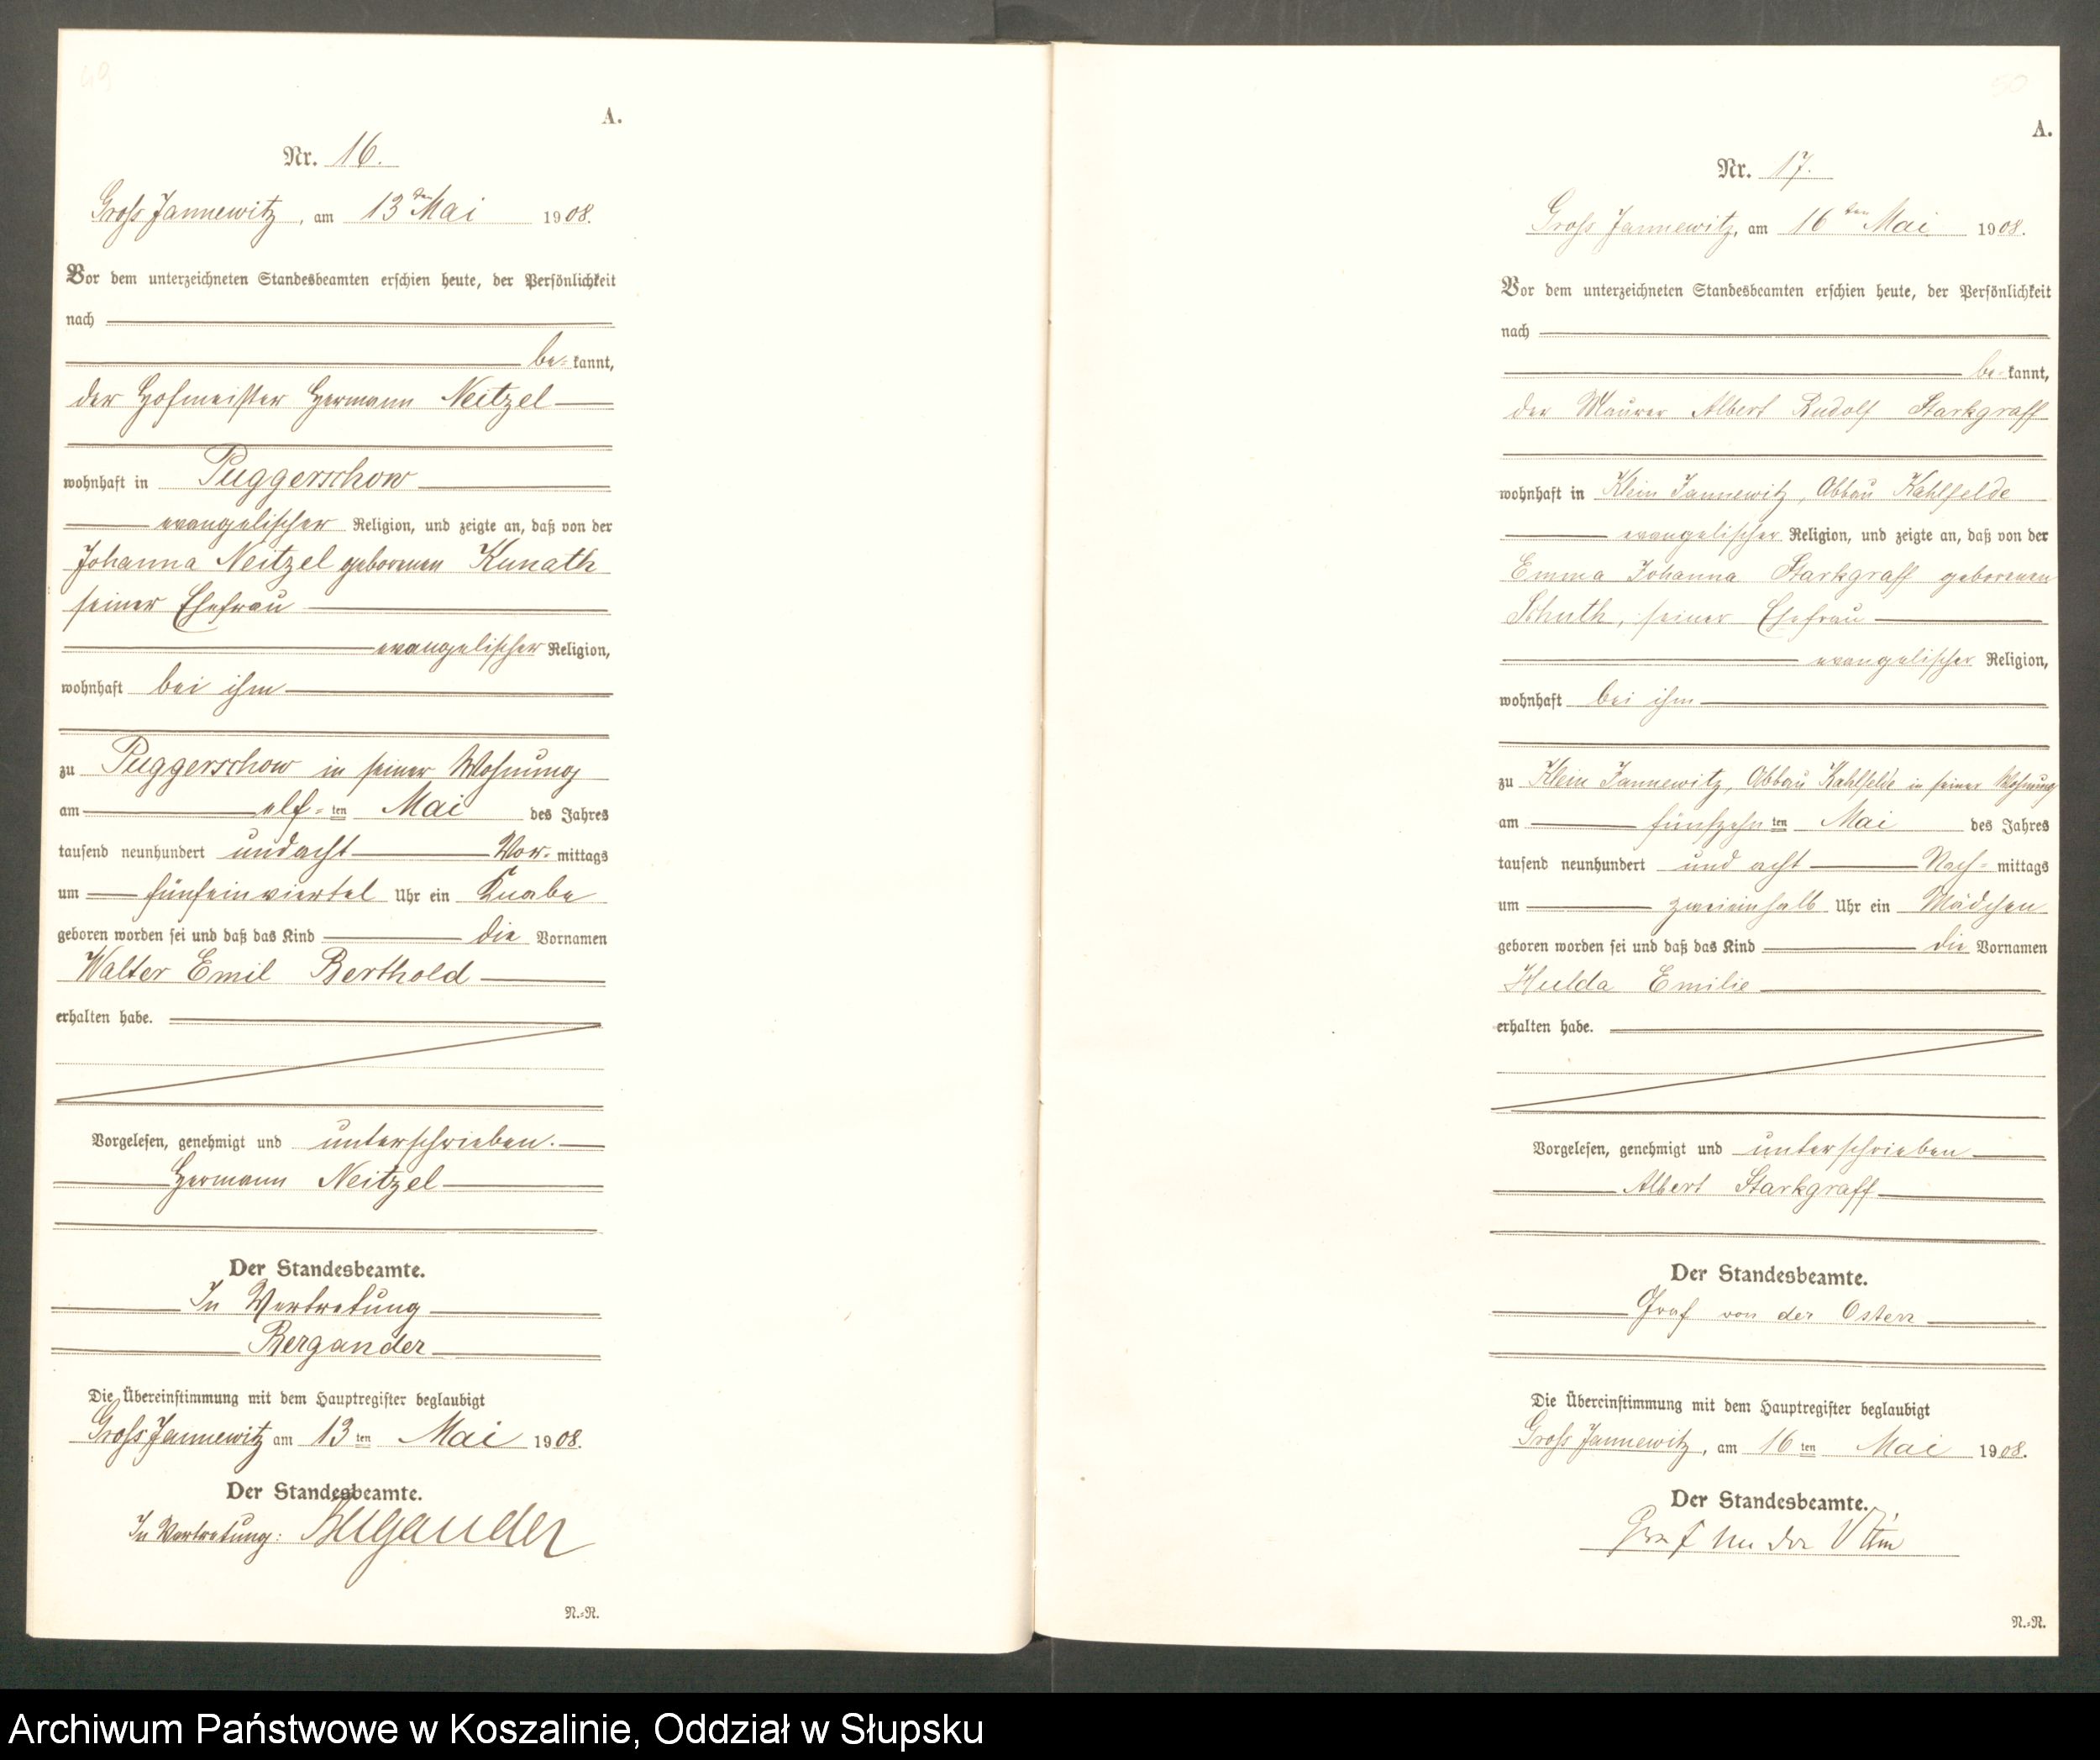 49
A.
Nr. 16.
Gross Jannewitz, am 13ten Mai 1908.
Vor dem unterzeichneten Standesbeamten erschien heute, der Persönlichkeit
nach
be-kannt,
der Hofmeister Hermann Neitzel
wohnhaft in Puggerschow
evangelischer Religion, und zeigte an, daß von der
Johanna Neitzel geborenen Kunath
seiner Ehefrau
evangelischer Religion,
wohnhaft bei ihm
zu Puggerschow in seiner Wohnung
am elf-ten Mai des Jahres
tausend neunhundert und acht Vor-mittags
um fünfeinviertel Uhr ein Knabe
geboren worden sei und daß das Kind die Vornamen
Walter Emil Berthold
erhalten habe.
Vorgelesen, genehmigt und unterschrieben.
Hermann Neitzel
Der Standesbeamte.
In Vertretung
Bergander
Die Übereinstimmung mit dem Hauptregister beglaubigt
Gross Jannewitz am 13ten Mai 1908.
Der Standesbeamte.
In Vertretung: Bergander
N.-N.
50
A.
Nr. 17.
Gross Jannewitz, am 16ten Mai 1908.
Vor dem unterzeichneten Standesbeamten erschien heute, der Persönlichkeit
nach
be-kannt,
der Maurer Albert Rudolf Starkgraff
wohnhaft in Klein Jannewitz, Abbau Kahlfelde
evangelischer Religion, und zeigte an, daß von der
Emma Johanna Starkgraff geborenen
Schuth, seiner Ehefrau
evangelischer Religion,
wohnhaft bei ihm
zu Klein Jannewitz, Abbau Kahlfelde in seiner Wohnung
am fünfzehnten Mai des Jahres
tausend neunhundert und acht Nach-mittags
um zweieinhalb Uhr ein Mädchen
geboren worden sei und daß das Kind die Vornamen
Hulda Emilie
erhalten habe.
Vorgelesen, genehmigt und unterschrieben
Albert Starkgraff
Der Standesbeamte.
Graf von der Osten
Die Übereinstimmung mit dem Hauptregister beglaubigt
Gross Jannewitz, am 16ten Mai 1908.
Der Standesbeamte.
Graf von der Osten
N.-N.
Archiwum Państwowe w Koszalinie, Oddział w Słupsku